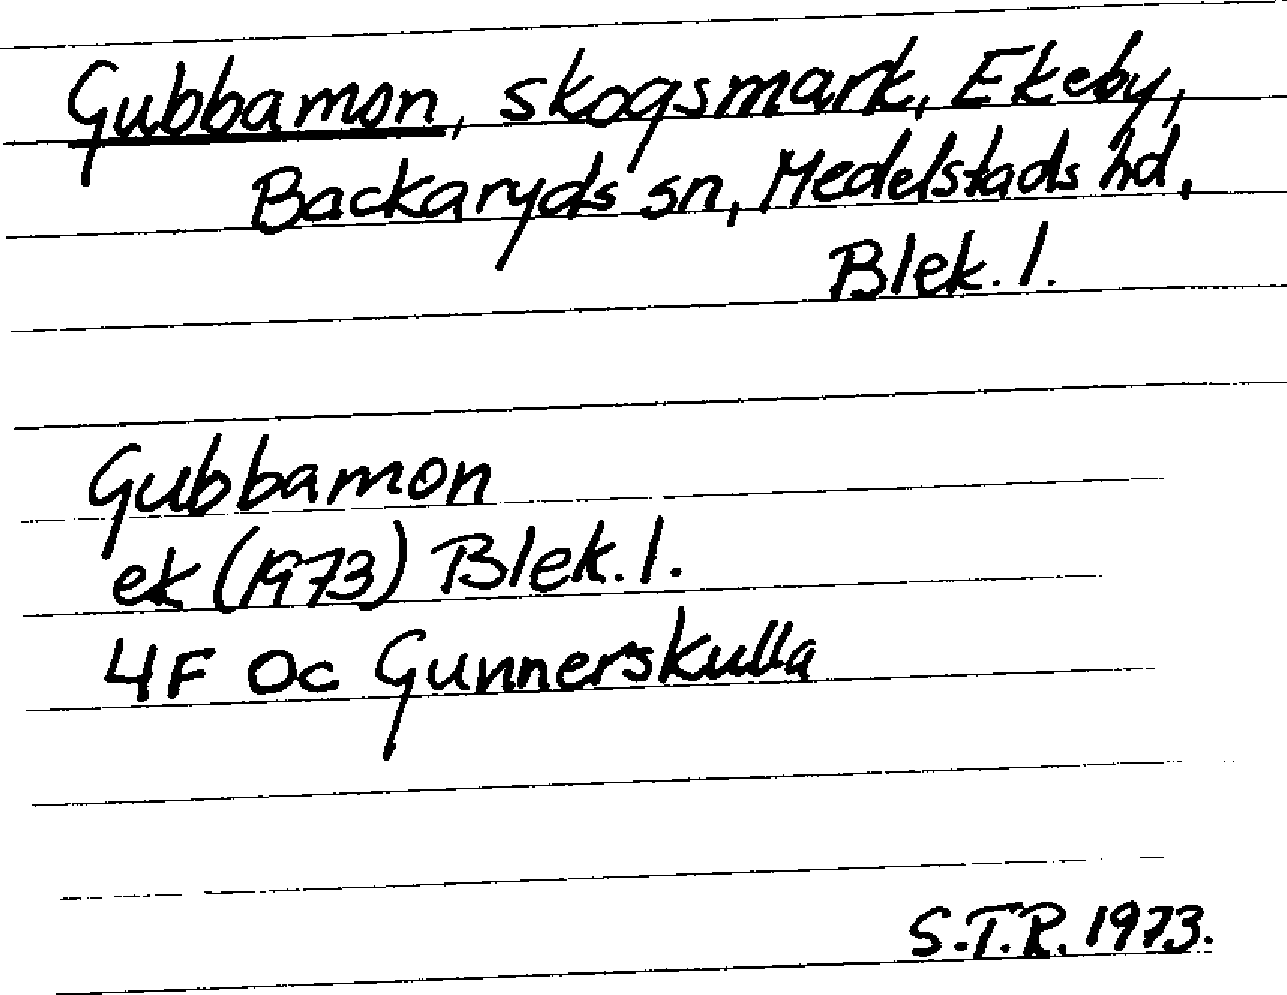 Gubbamon, skogsmark, Ekeby,
Backaryds sn, Medelstads hd,
Blek. l.
Gubbamon
ek (1973) Blek. l.
4F Oc Gunnerskulla
S.T.R. 1973.